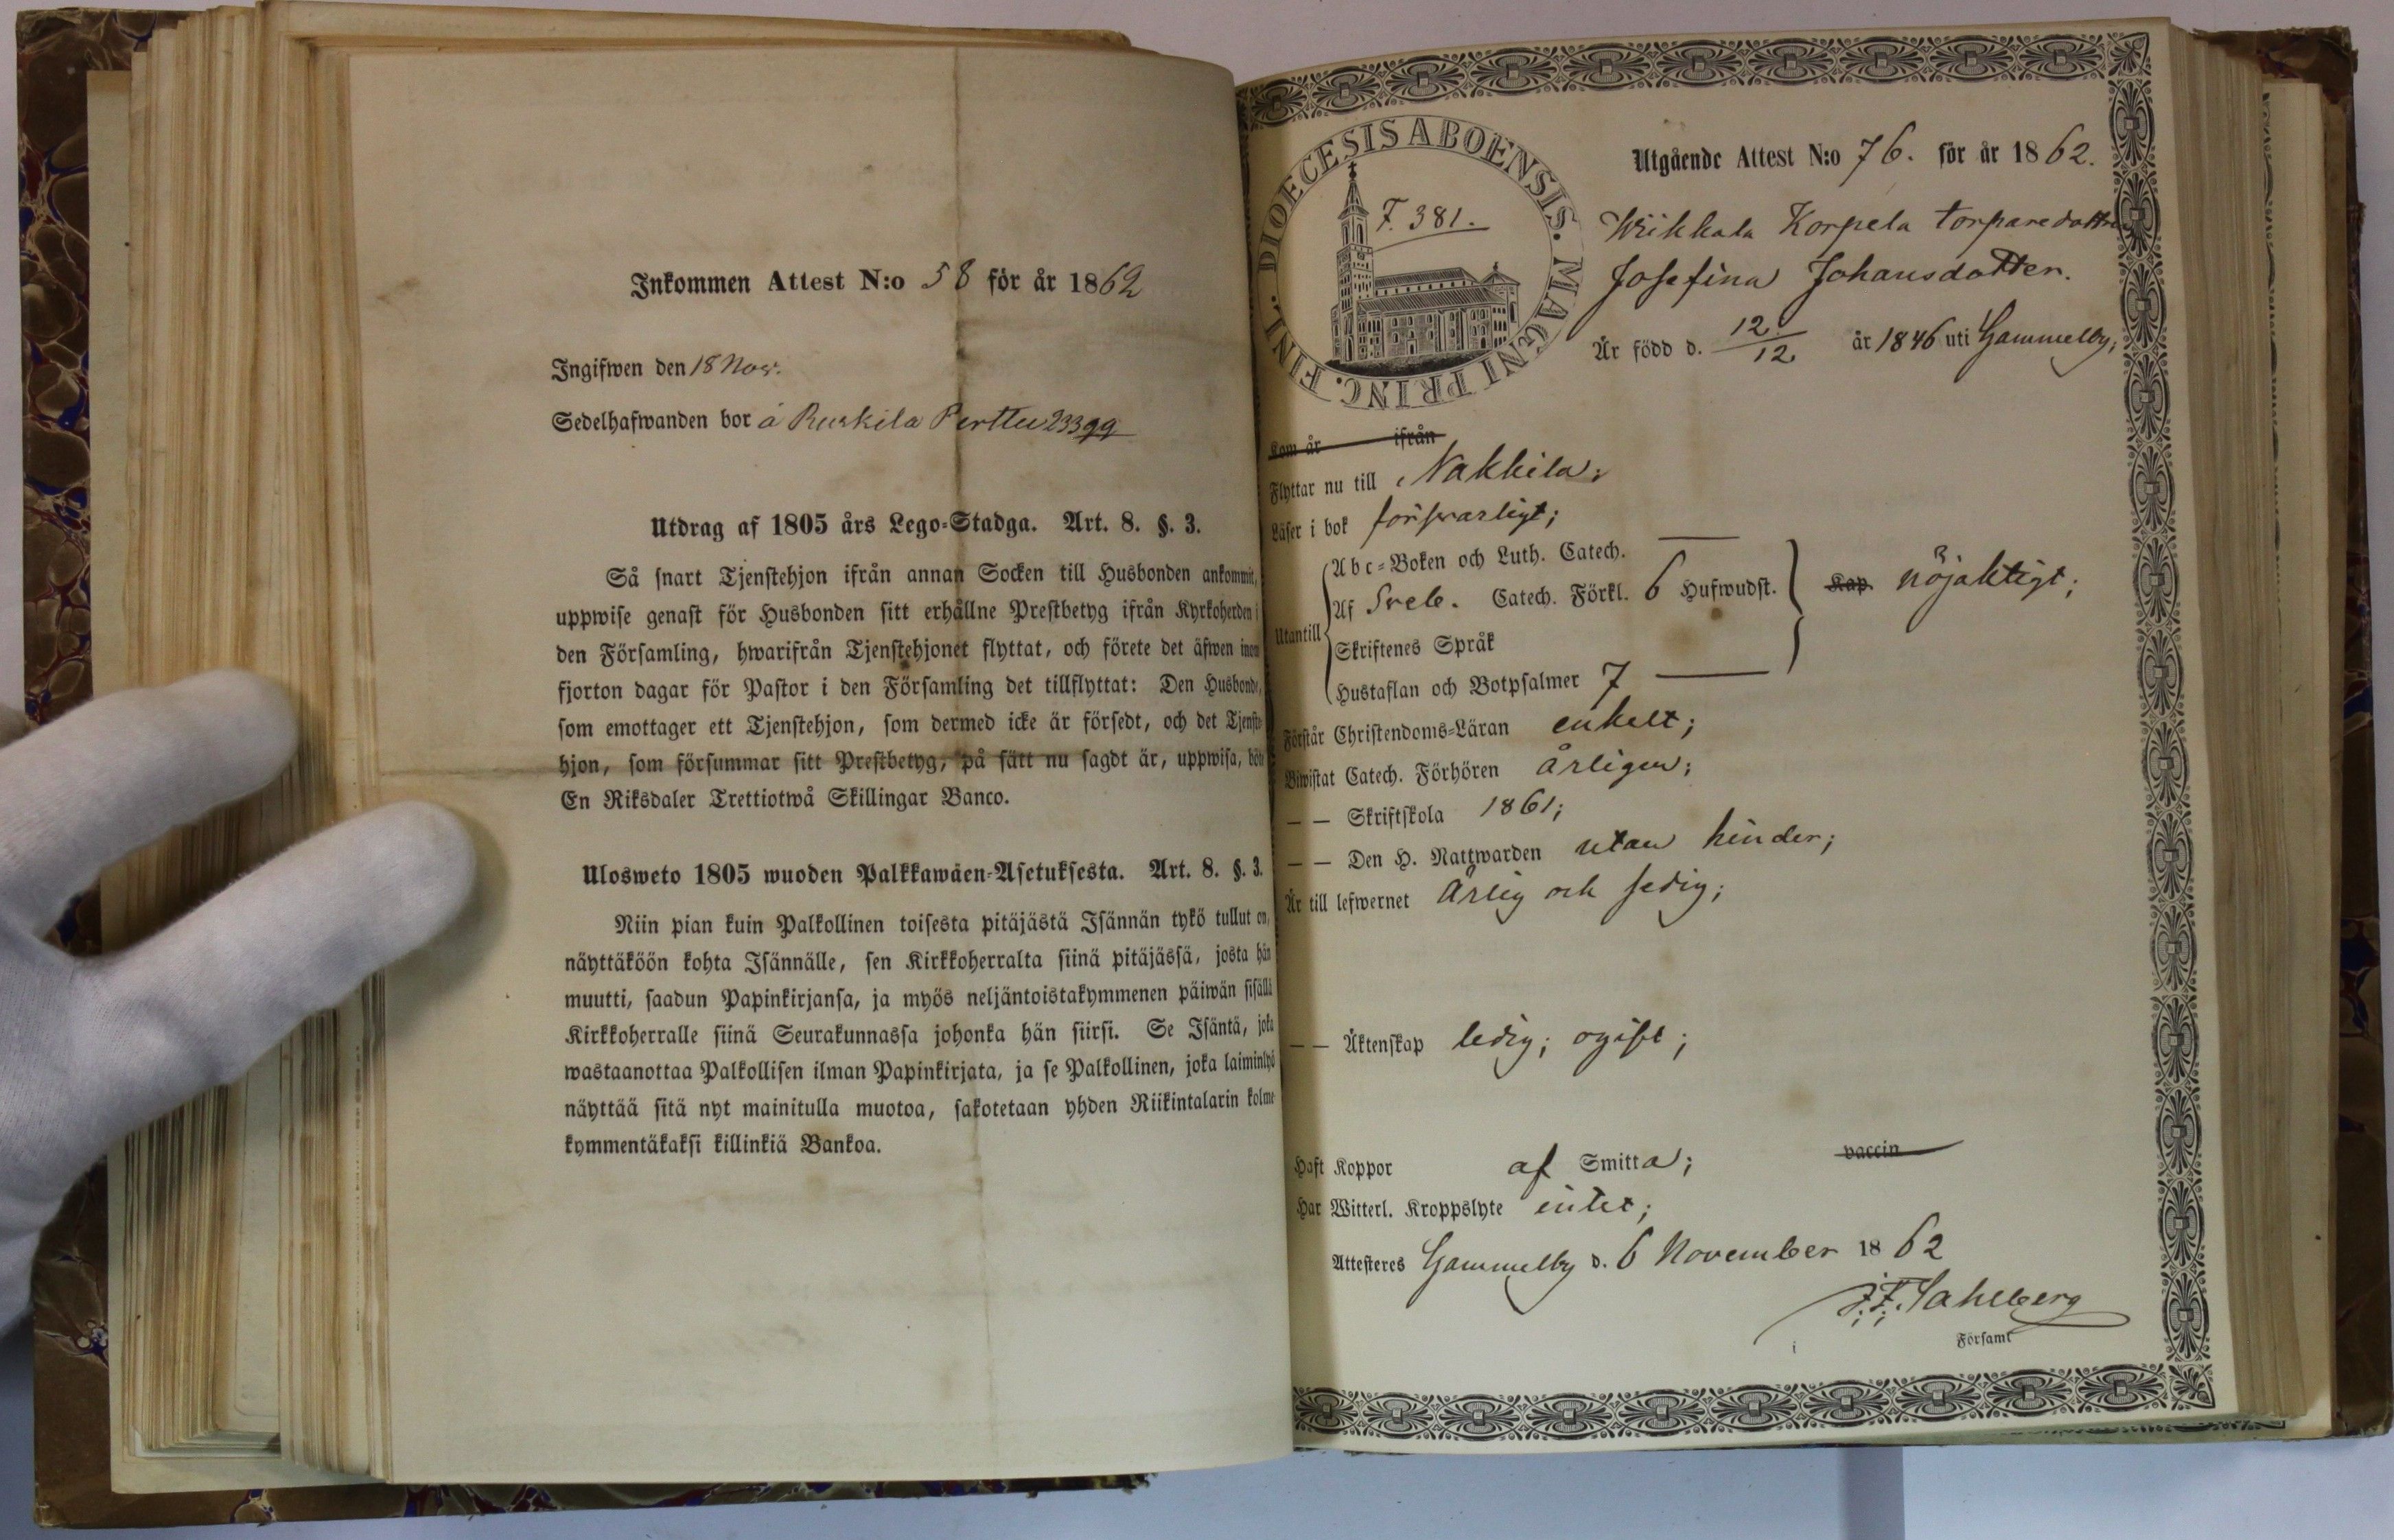 Inkommen Attest N:o 58 för år 1862
Ingifwen den 18 Nov.
Sedelhafwanden bor å Ruskila Perttu 233
Utdrag af 1805 års Lego-Stadga. Art. 8. §. 3.
Så snart Tjenstehjon ifrån annan Socken till Husbonden ankommit,
uppwise genast för Husbonden sitt erhållne Prestbetyg ifrån Kyrkoherden i
den Församling, hwarifrån Tjenstehjonet flyttat, och förete det äfwen inom
fjorton dagar för Pastor i den Församling det tillflyttat: Den Husbonde,
som emottager ett Tjenstehjon, som dermed icke är försedt, och det Tjenste-
hjon, som försummar sitt Prestbetyg, på sätt nu sagdt är, uppwisa, böte
En Riksdaler Trettiotwå Skillingar Banco.
Ulosweto 1805 wuoden Palkkawäen-Asetuksesta. Art. 8. §. 3.
Niin pian kuin Palkollinen toisesta pitäjästä Isännän tykö tullut on,
näyttäköön kohta Isännälle, sen Kirkkoherralta siinä pitäjässä, josta hän
muutti, saadun Papinkirjansa, ja myös neljäntoistakymmenen päiwän sisällä
Kirkkoherralle siinä Seurakunnassa johonka hän siirsi. Se Isäntä, joka
wastaanottaa Palkollisen ilman Papinkirjata, ja se Palkollinen, joka laiminlyö
näyttää sitä nyt mainitulla muotoa, sakotetaan yhden Riikintalarin kolme-
kymmentäkaksi killinkiä Bankoa.
DIOECESIS ABOENSIS. MAGNI PRINC. FINL.
F. 381.
Utgående Attest N:o 76. för år 1862.
Wiikkala Korpela torparedottren
Josefina Johansdotter.
Är född d. 12/12 år 1846 uti Gammelby;
Kom år ifrån
Flyttar nu till Nakkila;
Läser i bok förswarligt;
Abc-Boken och Luth. Catech.
Utantill Af Sveb. Catech. Förkl. 6 Hufwudst. Kap. nöjaktigt;
Skriftenes Språk
Hustaflan och Botpsalmer 7
Förstår Christendoms-Läran enkelt;
Biwistat Catech. Förhören årligen;
— — Skriftskola 1861;
— — Den H. Nattwarden utan hinder;
Är till lefwernet ärlig och sedig;
— — Äktenskap ledig; ogift;
Haft Koppor af Smitta; vaccin
Har Witterl. Kroppslyte intet;
Attesteres Gammelby d. 6 November 1862
J. F. Sahlberg
i Församl